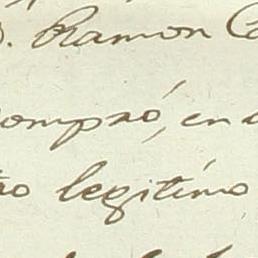 D. Ramon C
compró, en
ro legitimo